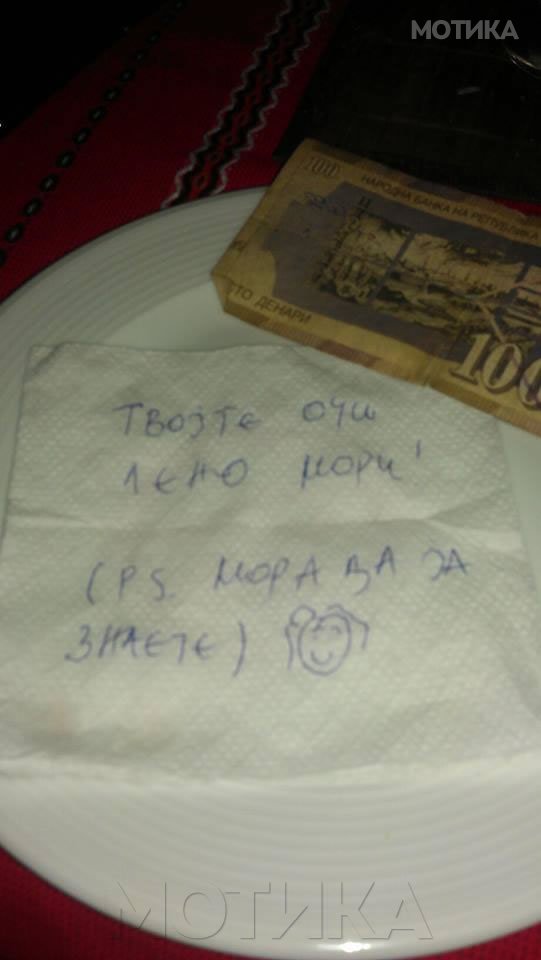 МОТИКА
100
НАРОДНА БАНКА НА РЕПУБЛИКА
СТО ДЕНАРИ
100
ТВОЈТЕ ОЧИ
ЛЕНО МОРИ!
(PS. МОРА ДА ЈА
ЗНАЕТЕ)
МОТИКА